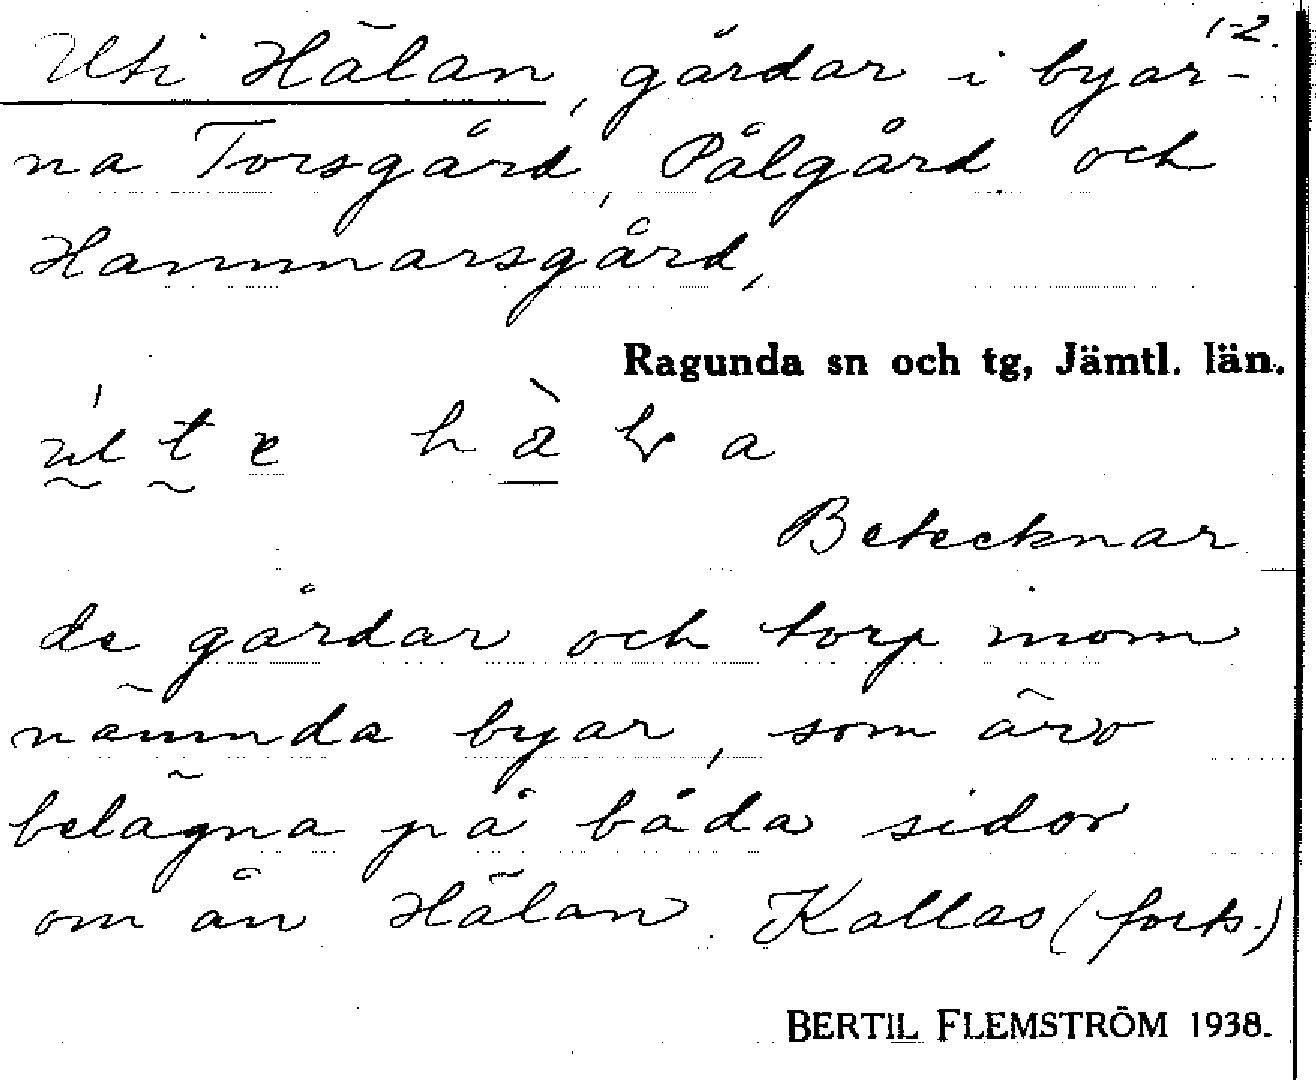 1-2.
Uti Hälan, gårdar i byar-
na Torsgård, Pålgård och
Hammarsgård,
Ragunda sn och tg, Jämtl. län.
Betecknar
de gårdar och torp inom
nämnda byar, som äro
belägna på båda sidor
om ån Hälan Kallas (forts.)
BERTIL FLEMSTRÖM 1938.